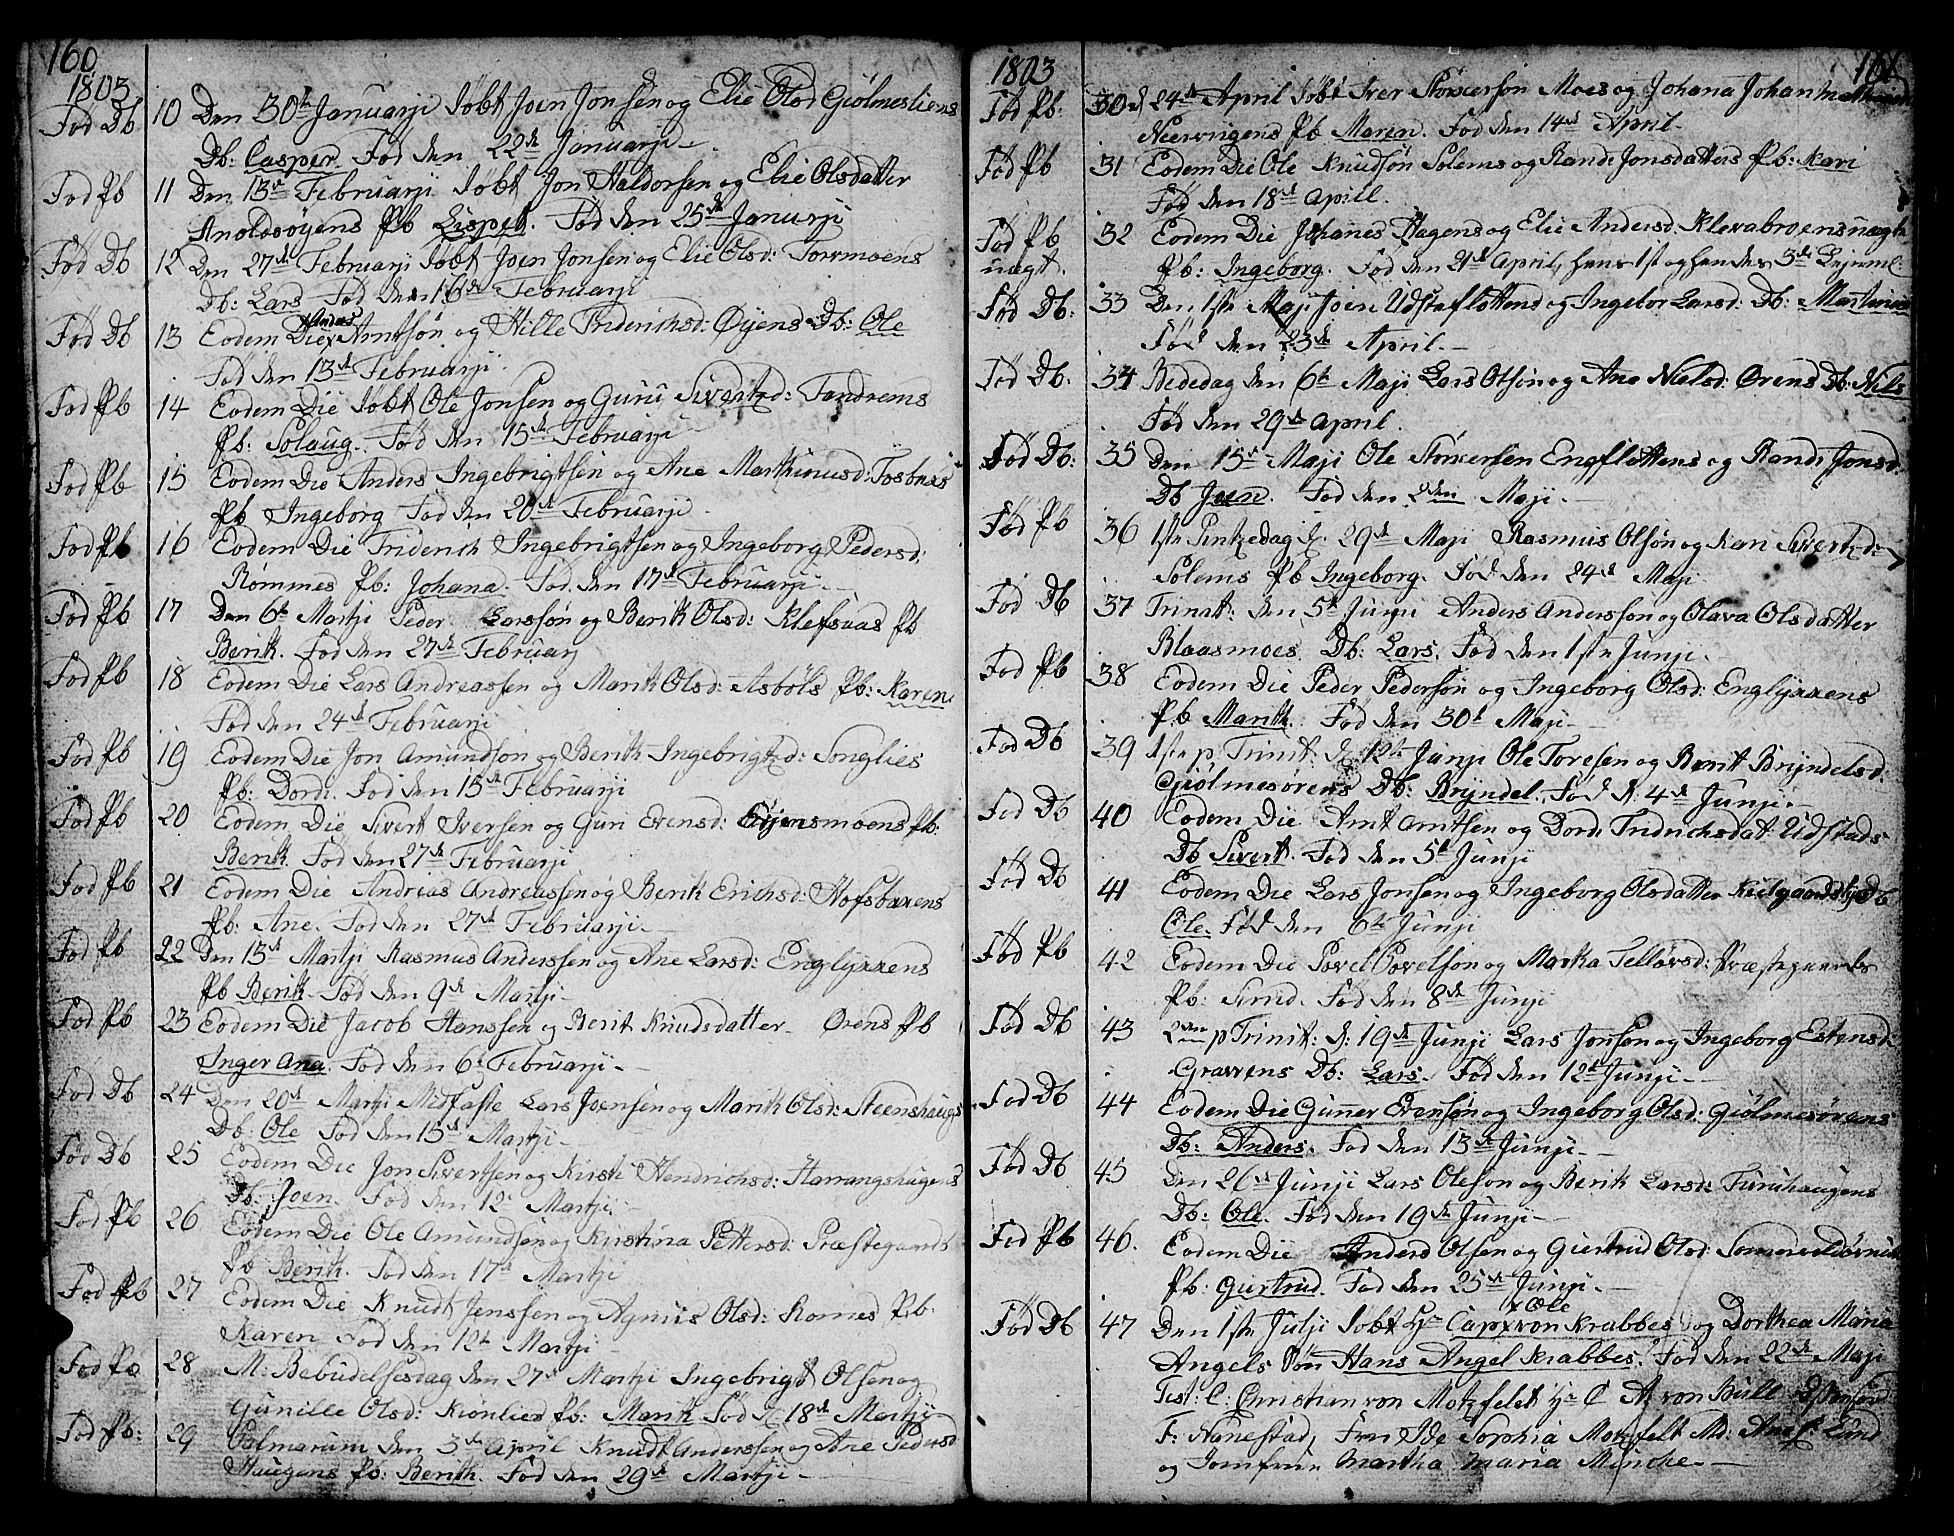 160
1803
Fød Db 10 Den 30te Januarji døbt Joen Jonsen og Elie Olsd Giølmesliens
Db: Casper. Fød den 22de Januarji
Fød Pb 11 Den 13de Februarji døbt Jon Haldorsen og Elie Olsdatter
Pb Lispet. Fød den 25de Januarji
Fød Db 12 Den 27de Februarji døbt Joen Jonsen og Elie Olsd: Tormoens
Db: Lars Fød den 16de Februarji
Fød Db 13 Eodem Die Anders Arntsøn og Hille Friderichsd: Øyens Db: Ole
Fød den 13de Februarji.
Fød Pb 14 Eodem Die døbt Ole Jonsen og Guru Sivertzd: Fandrems
Pb: Solaug. Fød den 15de Februarji
Fød Pb 15 Eodem Die Anders Ingebrigtsen og Ane Marthinusd:
Pb Ingeborg Fød den 20de Februarji.
Fød Pb 16 Eodem Die Friderich Ingebrigtsen og Ingeborg Pedersd:
Rømmes Pb: Johana. Fød den 17de Februarji.
Fød Pb 17 Den 6te Martji Peder Larssøn og Berit Olsd: Klefsaas Pb
Berit. Fød den 27de Februarj
Fød Pb 18 Eodem Die Lars Andreassen og Marit Olsd: Asbøls Pb: Karen
Fød den 24de Februarji
Fød Pb 19 Eodem Die Jon Amundsøn og Berit Ingebrigtzd: Songlies
Pb: Dordi. Fød den 15de Februarji
Fød Pb 20 Eodem Die Sivert Iversen og Guri Evensd: Pb:
Berit. Fød den 27de Februarji
Fød Pb 21 Eodem Die Andrias Andreassen og Berit Erichsd: Hofsbakens
Pb: Ane. Fød den 27de Februarji.
Fød Pb 22 Den 13de Martji Rasmus Anderssen og Ane Larsd: Englyxxens
Pb Berit. Fød den 9de Martji
Fød Pb 23 Eodem Die Jacob Hanssen og Berit Knudsdatter Ørens Pb
Inger Ana. Fød den 6te Februarji.
Fød Db 24 Den 20de Martji Midfaste Lars Joensen og Marit Olsd: Steenshaugs
Db: Ole Fød den 13de Martji
Fød Db 25 Eodem Die Jon Sivertsen og Kirsti Hendrichsd: Harrangshaugens
Db: Joen. Fød den 12te Martji
Fød Pb 26 Eodem Die Ole Amundsen og Kirstina Pettersd: Præstegaards
Pb Berit. Fød den 17de Martji
Fød Pb 27 Eodem Die Knudt Jenssen og Agniis Olsd: Romes Pb:
Karen Fød den 12te Martji
Fød Pb 28 M: Bebudelsesdag den 27de Martji Ingebrigt Olsen og
Gunille Olsd: Kiønlied Pb: Marit Fød d 18de Martji
Fød Pb: 29 Palmarum den 3de April Knudt Anderssen og Ane Pedersd
Haugens Pb: Berith. Fød den 29de Martji.
161
1803
Fød Pb. 30 d 24de April døbt Iver Størcersøn Moes og Johana Johan
Pb Maren. Fød den 14de April.
Fød Pb 31 Eodem Die Ole Knudsøn Solems og Randi Jonsdatters Pb: Kari
Fød den 18de April.
Fød Pb uægt. 32 Eodem Die Johanes Hagens og Elie Andersd. Klevabroens uægte
Pb: Ingeborg. Fød den 21de April, hans 1ste og hendes 3de Lejerml:
Fød Db: 33 Den 1ste Maji Joen Udstefløttens og Ingebor Larsd: Db: Marthinus
Fød den 23de April.
Fød Db. 34 Bededag den 6te Maji Lars Olsøn og Ane Nielsd: Ørens Db: Nils
Fød den 29de April.
Fød Db: 35 Den 15de Maji Ole Størcersen Engfløttens og Randi Jonsd:
Db Joen. Fød den 2den Maji.
Fød Pb 36 1ste Pintzedag d: 29de Maji Rasmus Olsøn og Kari Sivertzd:
Solems Pb Ingeborg. Fød den 24de Maji
Fød Db 37 Trinit: den 5te Junji Anders Anderssøn og Olava Olsdatter
Blaasmoes Db: Lars. Fød den 1ste Junji.
Fød Pb 38 Eodem Die Peder Pedersøn og Ingeborg Olsd: Englyxxens
Pb Marit. Fød den 30te Maji
Fød Db 39 1ste p. Trinit. d 12te Junji Ole Toresen og Berit Bryndelsd:
Giølmesørens Db: Bryndel. Fød d. 4de Junji.
Fød Db 40 Eodem Die Arnt Arntsen og Dordi Fridrichsdat: Udstads
Db Sivert. Fød den 5te Junji
Fød Db 41 Eodem Die Lars Jonsen og Ingeborg Olsdatter Db
Ole. Fød den 6te Junji
Fød Pb 42 Eodem Die Povel Povelsøn og Marka Tellevsd: Præstegaards
Pb: Sirid. Fød den 8de Junji
Fød Db 43 2den p Trinit: d: 19de Junji Lars Jonsøn og Ingeborg Estensd:
Gravens Db: Lars. Fød den 12te Junji.
Fød Db 44 Eodem Die Gunner Evensøn og Ingeborg Olsd: Giølmesørens
Db: Anders. Fød den 13de Junji.
Fød Db 45 Den 26de Junji Lars Oleson og Berit Larsd: Furuhaugens
Db: Ole. Fød den 19de Junji
Fød Pb 46. Eodem Die Anders Olsen og Giertrud Olsd:
Pb: Giertrud. Fød den 25de Junji.
x Ole
Fød Db 47 Den 1ste Julji døbt Hr Cap x von Krabbes og Dorthea Maria
Angels Søn Hans Angel Krabbes. Fød den 22de Maji
Test: C: Christian von Motzfelt Hr C A von Bull
F: Nanestad, Fru Ide Sophia Motzfelt Md: Ane S: Lund
og Jomfrue Martha Maria Minche.